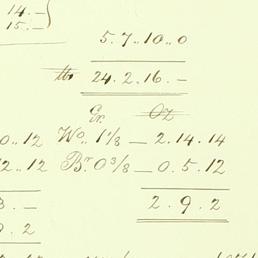 14.–
15.–
5.7..10..0
lb 24.2.16.–
Gr. Oz
0..12 Wo.. 1 1/8 – 2.14.14
2..12 Br 0 3/8 – 0.5.12
3.– 2.9.2
9.2